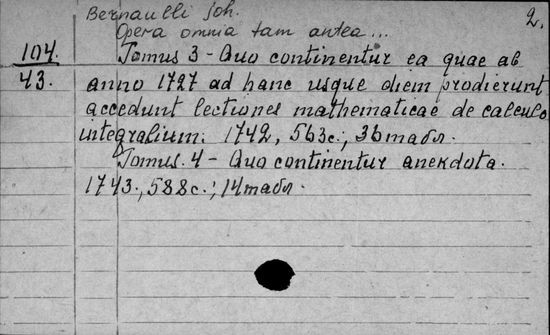 Bernaulli Joh. 2.
Opera omnia tam antea...
104. Tomus 3 - Quo continentur ea quae ab
43. anno 1727 ad hanc usque diem prodierunt
accedunt lectiones mathematicae de calculo
integralium. 1742, 563с.; 36 табл.
Tomus. 4 - Quo continentur anekdota.
1743., 588с.; 14 табл.